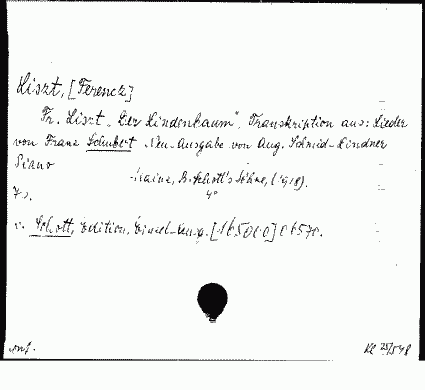 Liszt, [Ferencz]
Fr. Liszt "Der Lindenbaum", Transkription aus: Lieder
von Franz Schubert Neu-Ausgabe von Aug. Schmid-Lindner
Piano
Mainz, B. Schott's Söhne, (1918).
4°
7 s.
v. Schott, Edition, Einzel-Ausg.